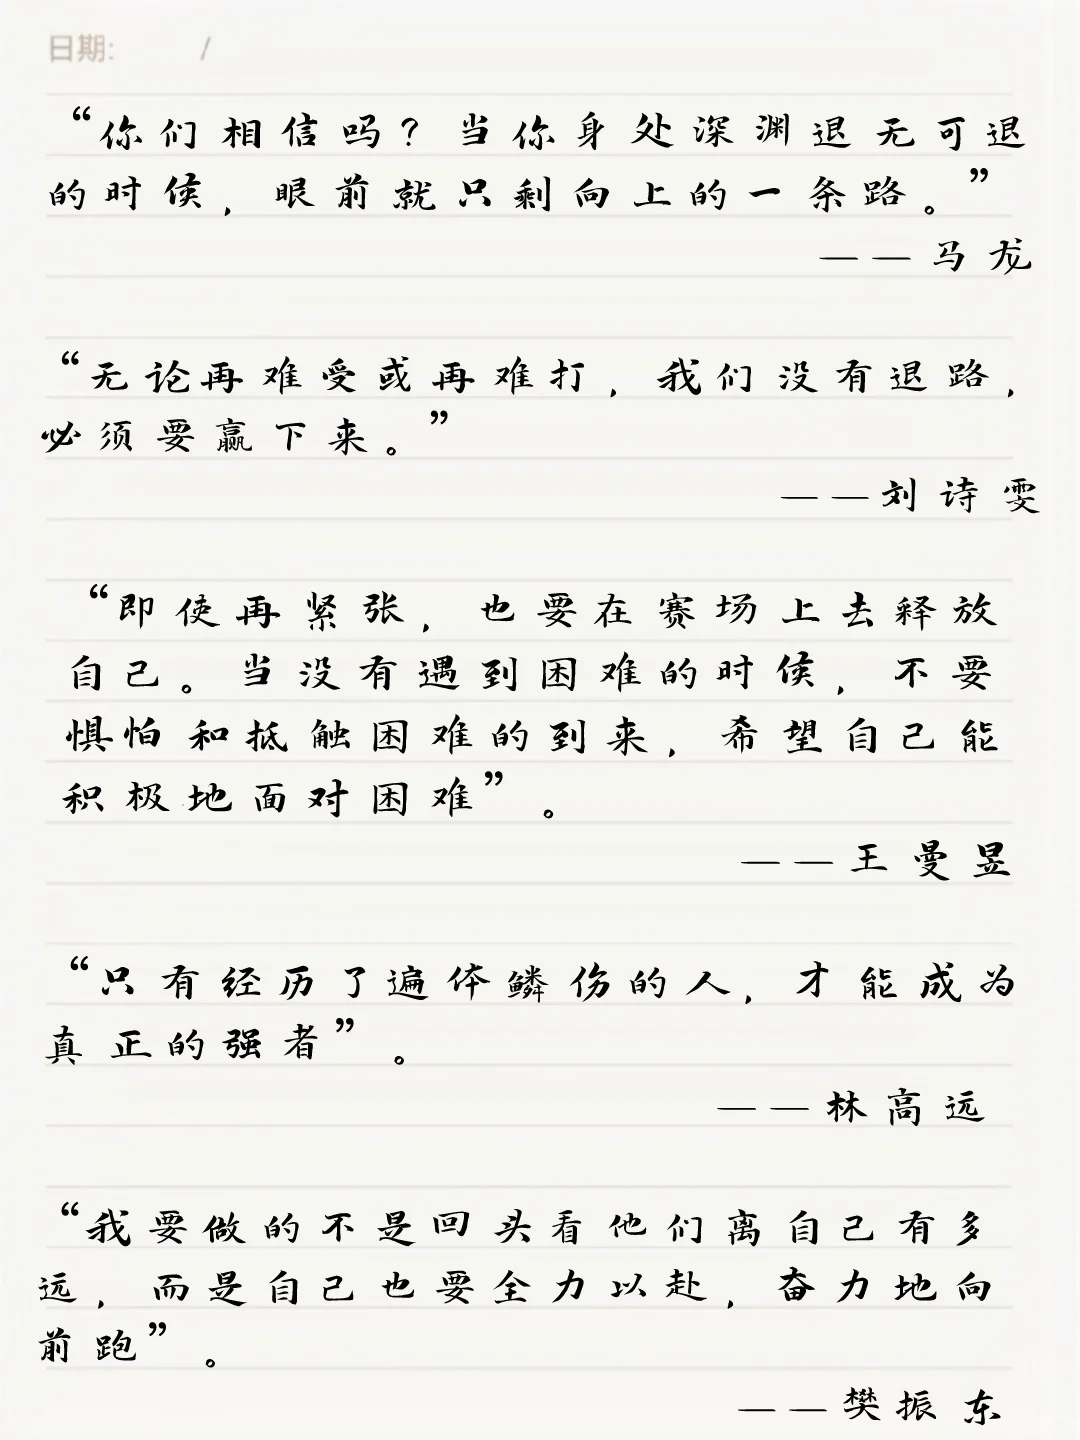 日期: /
“你们相信吗？当你身处深渊退无可退
的时候，眼前就只剩向上的一条路。”
——马龙
“无论再难受或再难打，我们没有退路，
必须要赢下来。”
——刘诗雯
“即使再紧张，也要在赛场上去释放
自己。当没有遇到困难的时候，不要
惧怕和抵触困难的到来，希望自己能
积极地面对困难”。
——王曼昱
“只有经历了遍体鳞伤的人，才能成为
真正的强者”。
——林高远
“我要做的不是回头看他们离自己有多
远，而是自己也要全力以赴，奋力地向
前跑”。
——樊振东